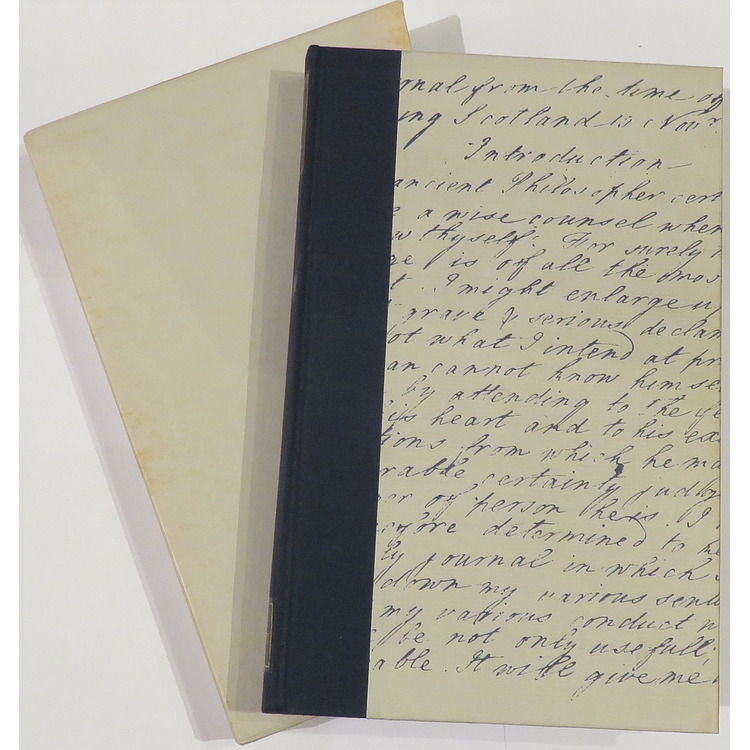 rnal from the time of
ing Scotland 15 Novr.
Introduction
ancient Philosopher cert
a wise counsel when
w thyself. For surely
ge is of all the mos
t. I might enlarge u
grave & serious declam
ot what I intend at pr
an cannot know himse
by attending to the fe
is heart and to his ex
tions from which he ma
rable certainty judg
er of person he is. I
efore determined to
ly journal in which
down my various sent
my various conduct w
be not only usefull,
able. It will give me